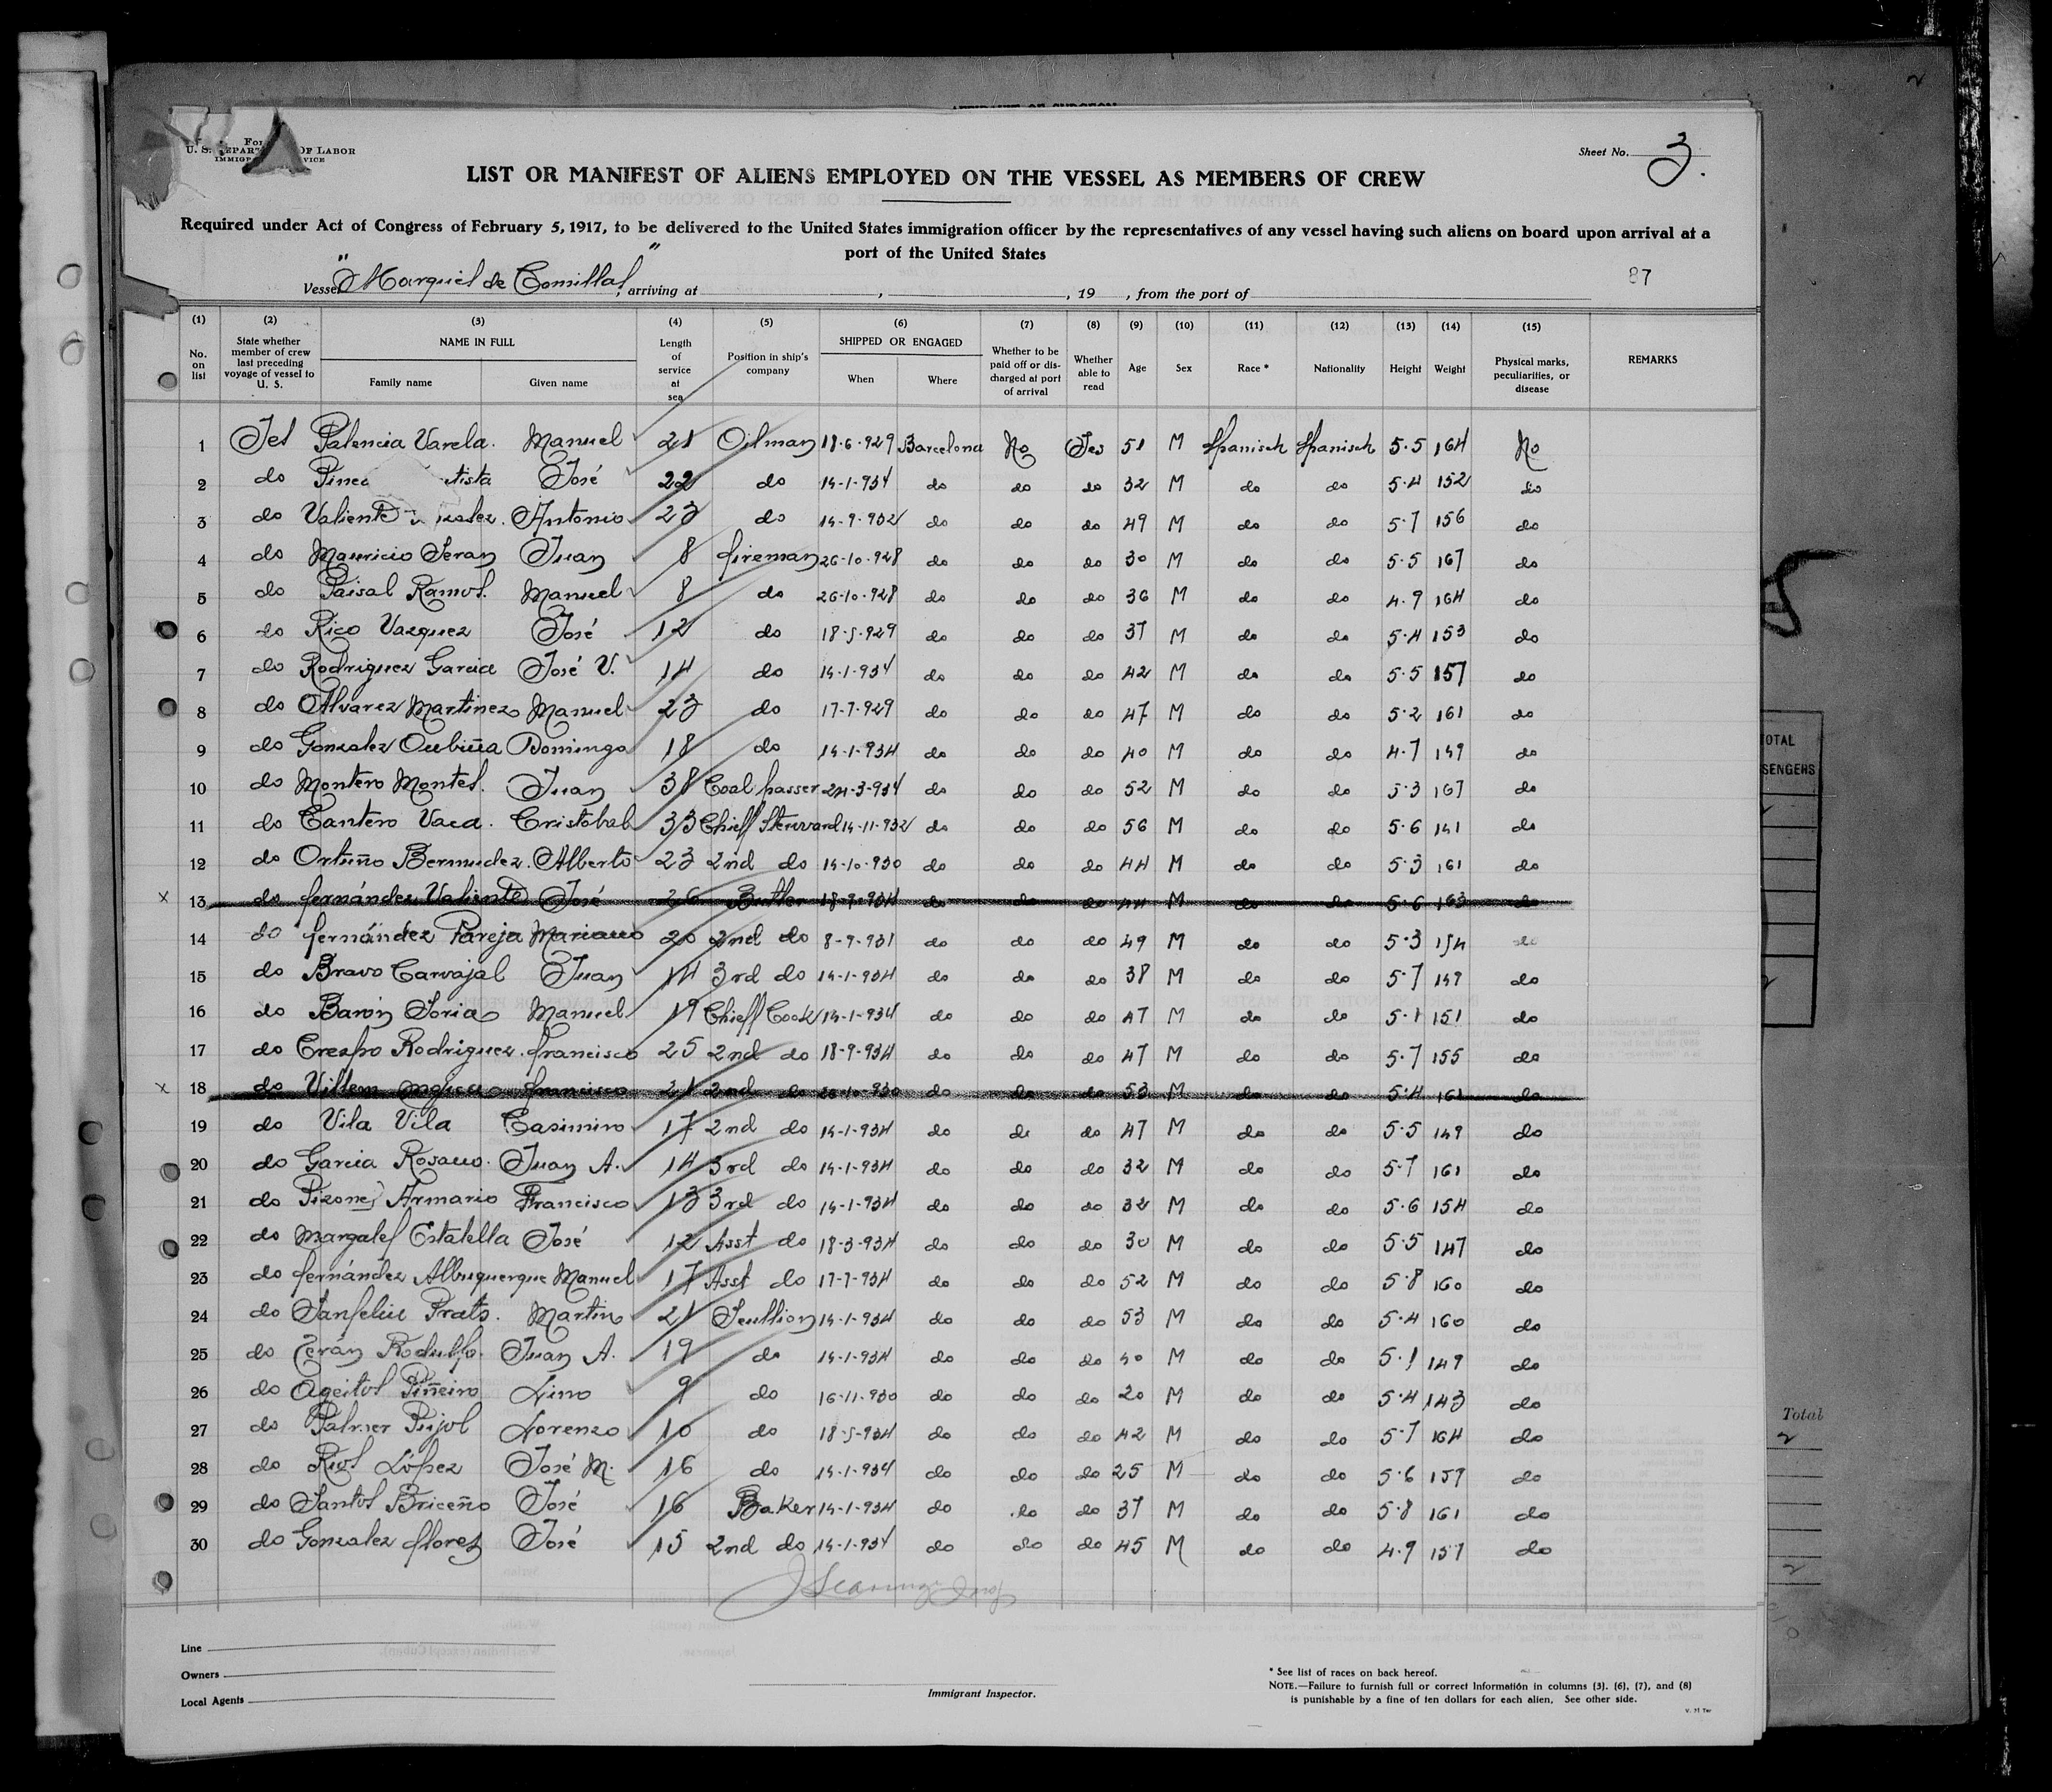 2
U. S. DEPAR OF LABOR
Sheet No. 3.
LIST OR MANIFEST OF ALIENS EMPLOYED ON THE VESSEL AS MEMBERS OF CREW
Required under Act of Congress of February 5, 1917, to be delivered to the United States immigration officer by the representatives of any vessel having such aliens on board upon arrival at a
port of the United States
Vessel "Marqués de Comillas", arriving at , , 19 , from the port of
87
(1) (2) (3) (4) (5) (6) (7) (8) (9) (10) (11) (12) (13) (14) (15)
No. on list State whether member of crew last preceding voyage of vessel to U. S. NAME IN FULL Family name Given name Length of service at sea Position in ship's company SHIPPED OR ENGAGED When Where Whether to be paid off or discharged at port of arrival Whether able to read Age Sex Race * Nationality Height Weight Physical marks, peculiarities, or disease REMARKS
1 Yes Palencia Varela. Manuel 21 Oilman 18-6-929 Barcelona No Yes 51 M Spanish Spanish 5.5 164 No
2 do José 22 do 14-1-934 do do do 32 M do do 5.4 152 do
3 do Valiente Antonio 23 do 14-9-932 do do do 49 M do do 5.7 156 do
4 do Mauricio Teran Juan 8 fireman 26-10-928 do do do 30 M do do 5.5 167 do
5 do Paisal Ramos. Manuel 8 do 26-10-928 do do do 36 M do do 4.9 164 do
6 do Rico Vazquez José 12 do 18-5-929 do do do 37 M do do 5.4 153 do
7 do Rodriguez Garcia José V. 14 do 14-1-934 do do do 42 M do do 5.5 157 do
8 do Alvarez Martinez Manuel 23 do 17-7-929 do do do 47 M do do 5.2 161 do
9 do Gonzalez Oubiña Domingo 18 do 14-1-934 do do do 40 M do do 4.7 149 do
10 do Montero Montes. Juan 38 Coal passer 24-3-934 do do do 52 M do do 5.3 167 do
11 do Cantero Vaca. Cristobal 33 Chieff Stewvard 14-11-932 do do do 56 M do do 5.6 141 do
12 do Ortuño Bermudez. Alberto 23 2nd do 14-10-930 do do do 44 M do do 5.3 161 do
x 13 do fernández Valiente José 26 Butler 18-9-934 do do do 44 M do do 5.6 163 do
14 do fernández Pareja Mariano 20 2nd do 8-9-931 do do do 49 M do do 5.3 154 do
15 do Bravo Carvajal Juan 14 3rd do 14-1-934 do do do 38 M do do 5.7 149 do
16 do Barón Soria Manuel 19 Chieff Cook 14-1-934 do do do 47 M do do 5.1 151 do
17 do Crespo Rodriguez. francisco 25 2nd do 18-9-934 do do do 47 M do do 5.7 155 do
x 18 do francisco 21 2nd do 20-10-930 do do do 53 M do do 5.4 161 do
19 do Vila Vila Casimiro 17 2nd do 14-1-934 do do do 47 M do do 5.5 149 do
20 do Garcia Rosano. Juan A. 14 3rd do 14-1-934 do do do 32 M do do 5.7 161 do
21 do Pizones Armario Francisco 13 3rd do 14-1-934 do do do 32 M do do 5.6 154 do
22 do Margalef Estatella José 12 Asst do 18-3-934 do do do 30 M do do 5.5 147 do
23 do fernández Albuquerque Manuel 17 Asst do 17-7-934 do do do 52 M do do 5.8 160 do
24 do Sanfeliu Prats. Martin 21 Scullion 14-1-934 do do do 53 M do do 5.4 160 do
25 do Terán Rodulfo. Juan A. 19 do 14-1-934 do do do 40 M do do 5.1 149 do
26 do Ageitos Piñeiro Lino 9 do 16-11-930 do do do 20 M do do 5.4 143 do
27 do Palmer Pujol Lorenzo 10 do 18-5-934 do do do 42 M do do 5.7 164 do
28 do Rios López José M. 16 do 14-1-934 do do do 25 M do do 5.6 159 do
29 do Santos Briceño José 16 Baker 14-1-934 do do do 37 M do do 5.8 161 do
30 do Gonzalez flores José 15 2nd do 14-1-934 do do do 45 M do do 4.9 157 do
Line
Owners
Local Agents
Immigrant Inspector.
* See list of races on back hereof.
NOTE.—Failure to furnish full or correct Information in columns (3), (6), (7), and (8)
is punishable by a fine of ten dollars for each alien. See other side.
OTAL
SENGERS
Total
2
2